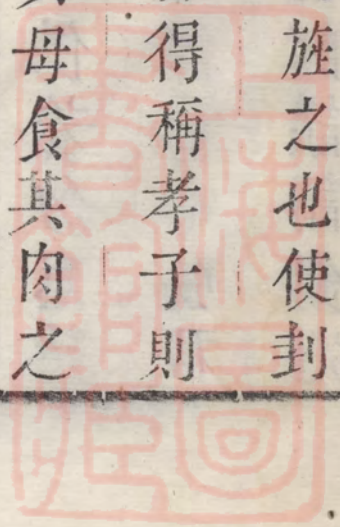 旌之也使刲
得稱孝子則
母食其肉之